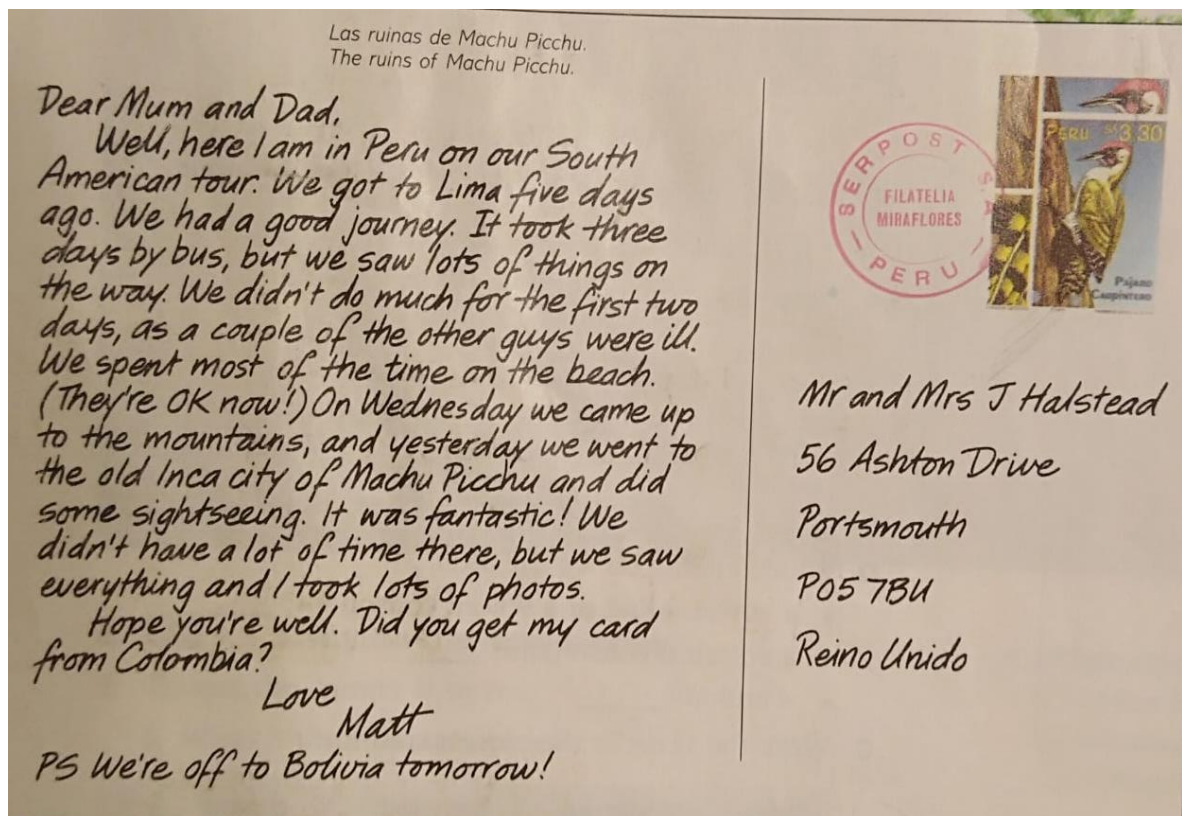 Las ruinas de Machu Picchu.
The ruins of Machu Picchu.
Dear Mum and Dad,
Well, here I am in Peru on our South
American tour. We got to Lima five days
ago. We had a good journey. It took three
days by bus, but we saw lots of things on
the way. We didn't do much for the first two
days, as a couple of the other guys were ill.
We spent most of the time on the beach.
(They're OK now!) On Wednesday we came up
to the mountains, and yesterday we went to
the old Inca city of Machu Picchu and did
some sightseeing. It was fantastic! We
didn't have a lot of time there, but we saw
everything and I took lots of photos.
Hope you're well. Did you get my card
from Colombia?
Love
Matt
PS We're off to Bolivia tomorrow!
SERPOST S.A
FILATELIA
MIRAFLORES
PERU
PERU S/. 3.30
Pajaro
Carpintero
Mr and Mrs J Halstead
56 Ashton Drive
Portsmouth
PO5 7BU
Reino Unido